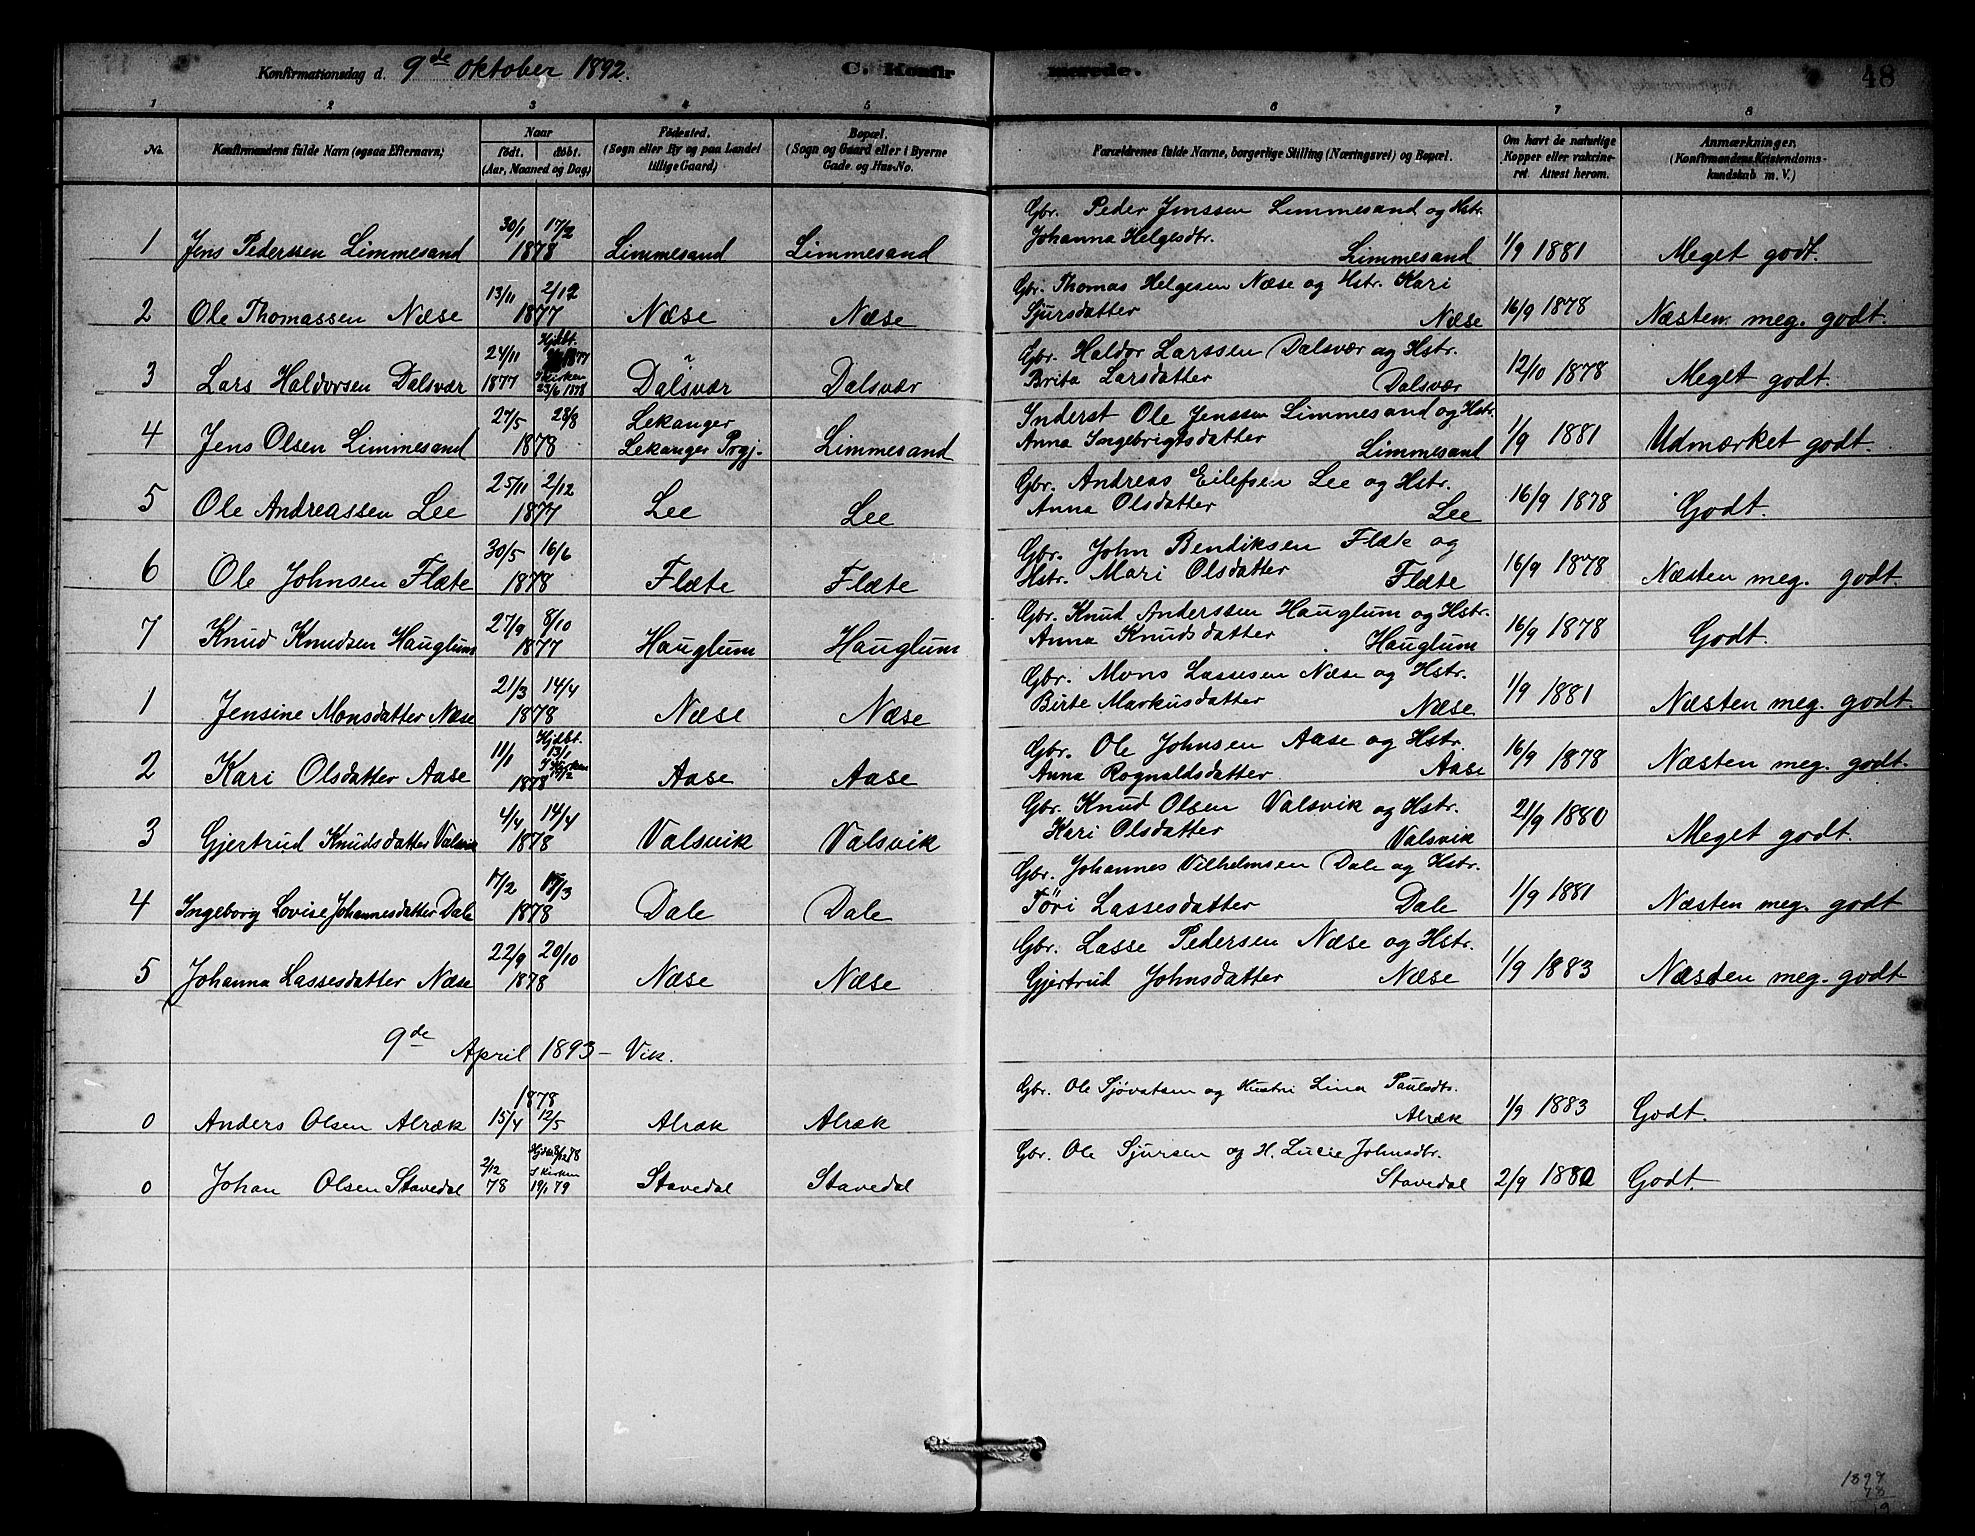 Konfirmationsdag d. 9de Oktober 1892. C. Konfirmerede. 48
1 2 3 4 5 6 7 8
No. Konfirmandens fulde Navn (ogsaa Efternavn) Naar født. døbt. (Aar, Maaned og Dag) Fødested. (Sogn eller By og paa Landet tillige Gaard) Bopæl. (Sogn og Gaard eller i Byerne Gade og Hus-No. Forældrenes fulde Navne, borgerlige Stilling (Næringsvei) og Bopæl. Om havt de naturlige Kopper eller vakcineret. Attest herom. Anmærkninger. (Konfirmandens Kristendomskundskab m. V.)
1 Jens Pederssen Limmesand 30/1 17/2 1878 Limmesand Limmesand Gbr. Peder Jenssen Limmesand og Hstr. Johanna Helgesdtr. Limmesand 1/9 1881 Meget godt.
2 Ole Thomassen Næse 13/11 2/12 1877 Næse Næse Gbr. Thomas Helgesen Næse og Hstr. Kari Sjursdatter Næse 16/9 1878 Næsten meg. godt.
3 Lars Haldorsen Dalsvær 24/11 1877 Hjdbt. 1877 I Kirken 23/6 1878 Dalsvær Dalsvær Gbr. Haldor Larssen Dalsvær og Hstr. Brita Larsdatter Dalsvær 12/10 1878 Meget godt.
4 Jens Olsen Limmesand 27/5 28/8 1878 Lekanger Lekanger Prgj. Limmesand Inderst Ole Jenssen Limmesand og Hstr. Anna Ingebrigtsdatter Limmesand 1/9 1881 Udmærket godt.
5 Ole Andreassen Lee 25/11 2/12 1877 Lee Lee Gbr. Andreas Eilefsen Lee og Hstr. Anna Olsdatter Lee 16/9 1878 Godt.
6 Ole Johnsen Flæte 30/5 16/6 1878 Flæte Flæte Gbr. John Bendiksen Flæte og Hstr. Mari Olsdatter Flæte 16/9 1878 Næsten meg. godt.
7 Knud Knudsen Hauglum 27/9 8/10 1877 Hauglum Hauglum Gbr. Knud Anderssen Hauglum og Hstr. Anna Knudsdatter Hauglum 16/9 1878 Godt.
1 Jensine Monsdatter Næse 21/3 14/4 1878 Næse Næse Gbr. Mons Lassesen Næse og Hstr. Birte Markusdatter Næse 1/9 1881 Næsten meg. godt.
2 Kari Olsdatter Aase 11/1 1878 Hjdbt. 13/1 I Kirken Aase Aase Gbr. Ole Johnsen Aase og Hstr. Anna Rognaldsdatter Aase 16/9 1878 Næsten meg. godt.
3 Gjertrud Knudsdatter Valsvik 4/4 14/4 1878 Valsvik Valsvik Gbr. Knud Olsen Valsvik og Hstr. Kari Olsdatter Valsvik 21/9 1880 Meget godt.
4 Ingeborg Lovise Johannesdatter Dale 17/2 1878 Dale Dale Gbr. Johannes Vilhelmsen Dale og Hstr. Töri Lassesdatter Dale 1/9 1881 Næsten meg. godt
5 Johanna Lassesdatter Næse 22/9 20/10 1878 Næse Næse Gbr. Lasse Pedersen Næse og Hstr. Gjertrud Johnsdatter Næse 1/9 1883 Næsten meg. godt
9de April 1893 - Vik.
0 Anders Olsen Alræk 1878 15/4 12/5 Alræk Alræk Gbr. Ole Sjøvatsen og Hustru Lina Paulsdtr. Alræk 1/9 1883 Godt.
0 Johan Olsen Stavedal 2/12 78 8/12 78 I Kirken 19/1 79 Stavedal Stavedal Gbr. Ole Sjursen og H. Lucie Johnsdtr. Stavedal 2/9 1880 Godt.
78
19